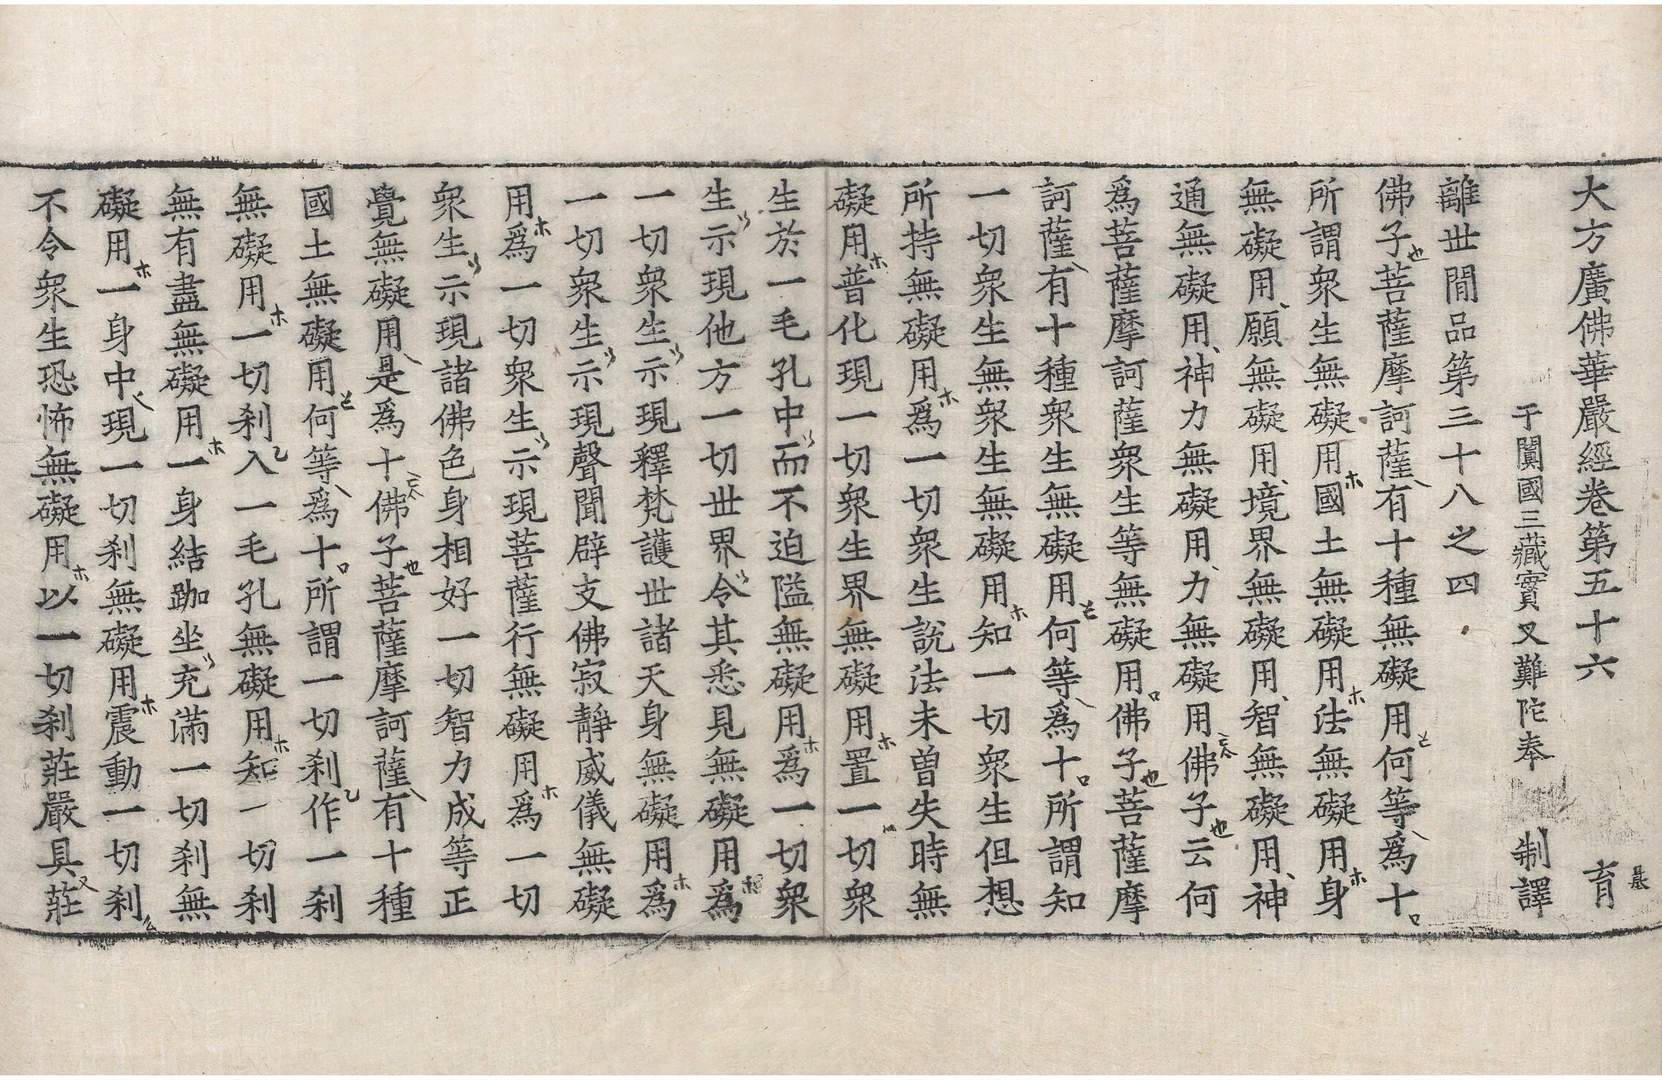 大方廣佛華嚴經卷第五十六 育
于闐國三藏實叉難陀奉 制譯
離世間品第三十八之四
佛子菩薩摩訶薩有十種無礙用何等爲十
所謂衆生無礙用國土無礙用法無礙用身
無礙用願無礙用境界無礙用智無礙用神
通無礙用神力無礙用力無礙用佛子云何
爲菩薩摩訶薩衆生等無礙用佛子菩薩摩
訶薩有十種衆生無礙用何等爲十所謂知
一切衆生無衆生無礙用知一切衆生但想
所持無礙用爲一切衆生說法未曽失時無
礙用普化現一切衆生界無礙用置一切衆
生於一毛孔中而不迫隘無礙用為一切衆
生示現他方一切世界令其悉見無礙用爲
一切衆生示現釋梵護世諸天身無礙用爲
一切衆生示現聲聞辟支佛寂靜威儀無礙
用爲一切衆生示現菩薩行無礙用爲一切
衆生示現諸佛色身相好一切智力成等正
覺無礙用是爲十佛子菩薩摩訶薩有十種
國土無礙用何等爲十所謂一切刹作一刹
無礙用一切刹入一毛孔無礙用知一切刹
無有盡無礙用一身結跏坐充滿一切刹無
礙用一身中現一切刹無礙用震動一切刹
不令衆生恐怖無礙用以一切刹莊嚴具莊